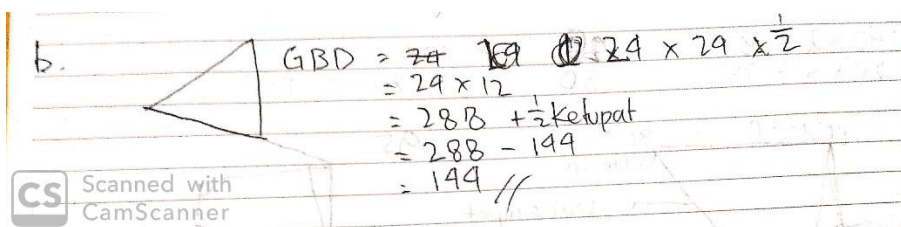 b. GBD = 24 × 24 × 1/2
= 24 × 12
= 288 + 1/2 Ketupat
= 288 - 144
= 144 //
CS Scanned with
CamScanner